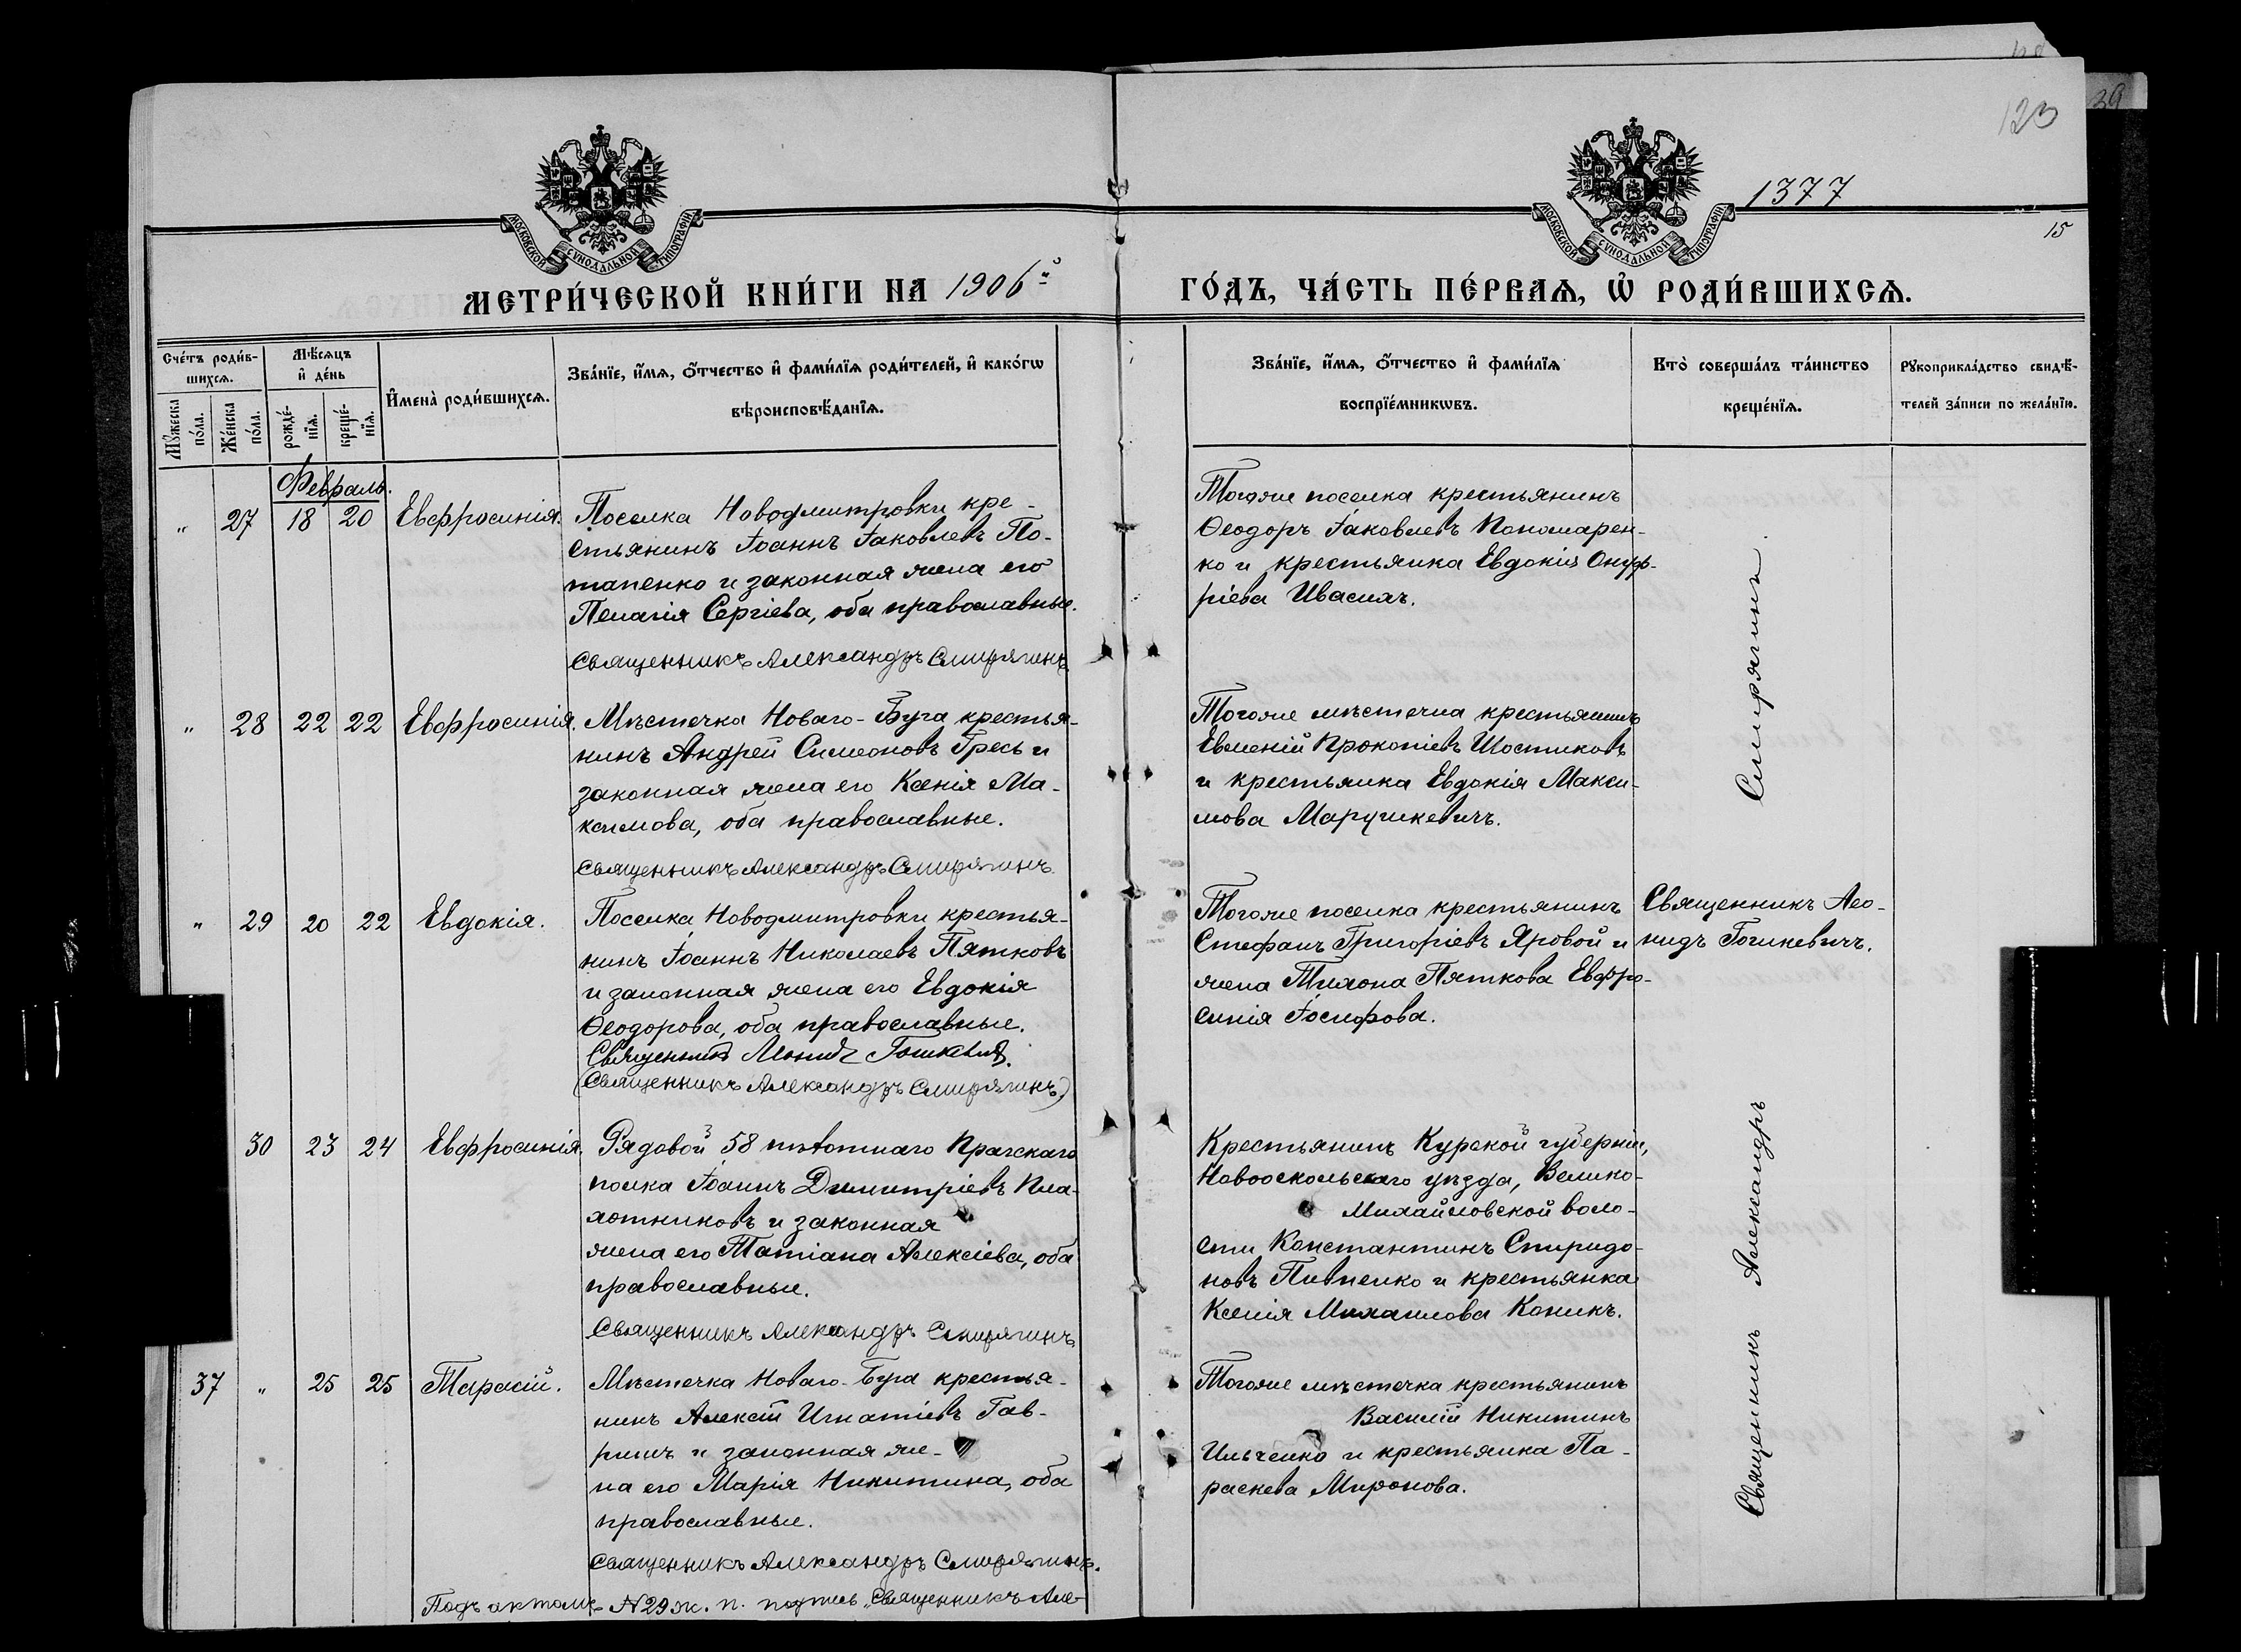 39
123
1377
15
МОСКОВСКОЙ СѴНОДАЛЬНОЙ ТИПОГРАФІИ
МОСКОВСКОЙ СѴНОДАЛЬНОЙ ТИПОГРАФІИ
МЕТРИ́ЧЕСКОЙ КНИ́ГИ НА 1906й
ГО́ДЪ, ЧА́СТЬ ПЕ́РВАѦ, Ѡ҆ РОДИ́ВШИХСѦ.
Сче́тъ роди́в-
шихсѧ.
Мꙋ́жеска по́ла.
Же́нска по́ла.
Мѣ́сѧцъ
и҆ де́нь
рожде́-
нїѧ.
креще́-
нїѧ.
И҆мена̀ роди́вшихсѧ.
Зва́нїе, и҆́мѧ, ѻ҆́тчество и҆ фами́лїѧ роди́телей, и҆ како́гѡ
вѣроисповѣ́данїѧ.
Зва́нїе, и҆́мѧ, ѻ҆́тчество и҆ фами́лїѧ
воспрїе́мникѡвъ.
Кто̀ соверша́лъ та́инство
креще́нїѧ.
Рꙋкоприкла́дство свидѣ́-
телей за́писи по жела́нїю.
Февраль.
„ 27 18 20 Евфросинія.
Поселка Новодмитровки кре-
стьянинъ Іоаннъ Іаковлевъ По-
тапенко и законная жена его
Пелагія Сергіева, оба православные.
Священникъ Александръ Смирягинъ
Тогоже поселка крестьянинъ
Ѳеодоръ Іаковлевъ Пономарен-
ко и крестьянка Евдокія Онуф-
ріева Ивасихъ.
„ 28 22 22 Евфросинія.
Мѣстечка Новаго-Буга крестья-
нинъ Андрей Симеоновъ Гресь и
законная жена его Ксенія Ма-
ксимова, оба православные.
Священникъ Александръ Смирягинъ
Тогоже мѣстечка крестьянинъ
Евменій Прокопіевъ Шостиковъ
и крестьянка Евдокія Макси-
мова Марушкевичъ.
„ 29 20 22 Евдокія.
Поселка Новодмитровки крестья-
нинъ Іоаннъ Николаевъ Пятковъ
и законная жена его Евдокія
Ѳеодорова, оба православные.
Священникъ Леонидъ Гошкевичъ.
(Священникъ Александръ Смирягинъ)
Тогоже поселка крестьянинъ
Стефанъ Григоріевъ Яровой и
жена Тихона Пяткова Евфро-
синія Іосифова.
Священникъ Лео-
нидъ Гошкевичъ.
30 23 24 Евфросинія.
Рядовой 58 пѣхотнаго Прагскаго
полка Іоаннъ Димитріевъ Пла-
хотниковъ и законная
жена его Татіана Алексіева, оба
православные.
Священникъ Александръ Смирягинъ
Крестьянинъ Курской губерніи,
Новооскольскаго уѣзда, Велико-
Михайловской воло-
сти Константинъ Спиридо-
новъ Пивненко и крестьянка
Ксенія Михаилова Коникъ.
37 „ 25 25 Тарасій.
Мѣстечка Новаго-Буга крестья-
нинъ Алексій Игнатіевъ Гав-
ришъ и законная же-
на его Марія Никитина, оба
православные.
Священникъ Александръ Смирягинъ.
Тогоже мѣстечка крестьянинъ
Василій Никитинъ
Ильченко и крестьянка Па-
раскева Миронова.
Священникъ Александръ Смирягинъ.
Подъ актомъ № 29 ж. п. подпись „Священникъ Але-